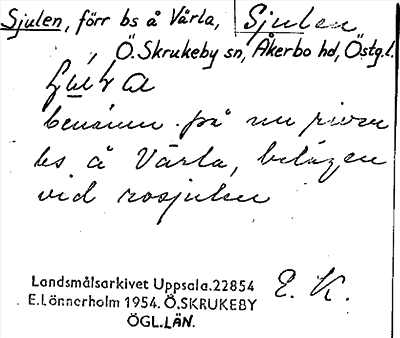 Sjulen, förr bs å Vårla, Sjulen
Ö. Skrukeby sn, Åkerbo hd, Östg.l.
benämn. på nu riven
bs å Vårla, belägen
vid rosjulen
E. K.
Landsmålsarkivet Uppsala. 22854
E. Lönnerholm 1954. Ö. SKRUKEBY
ÖGL. LÄN.